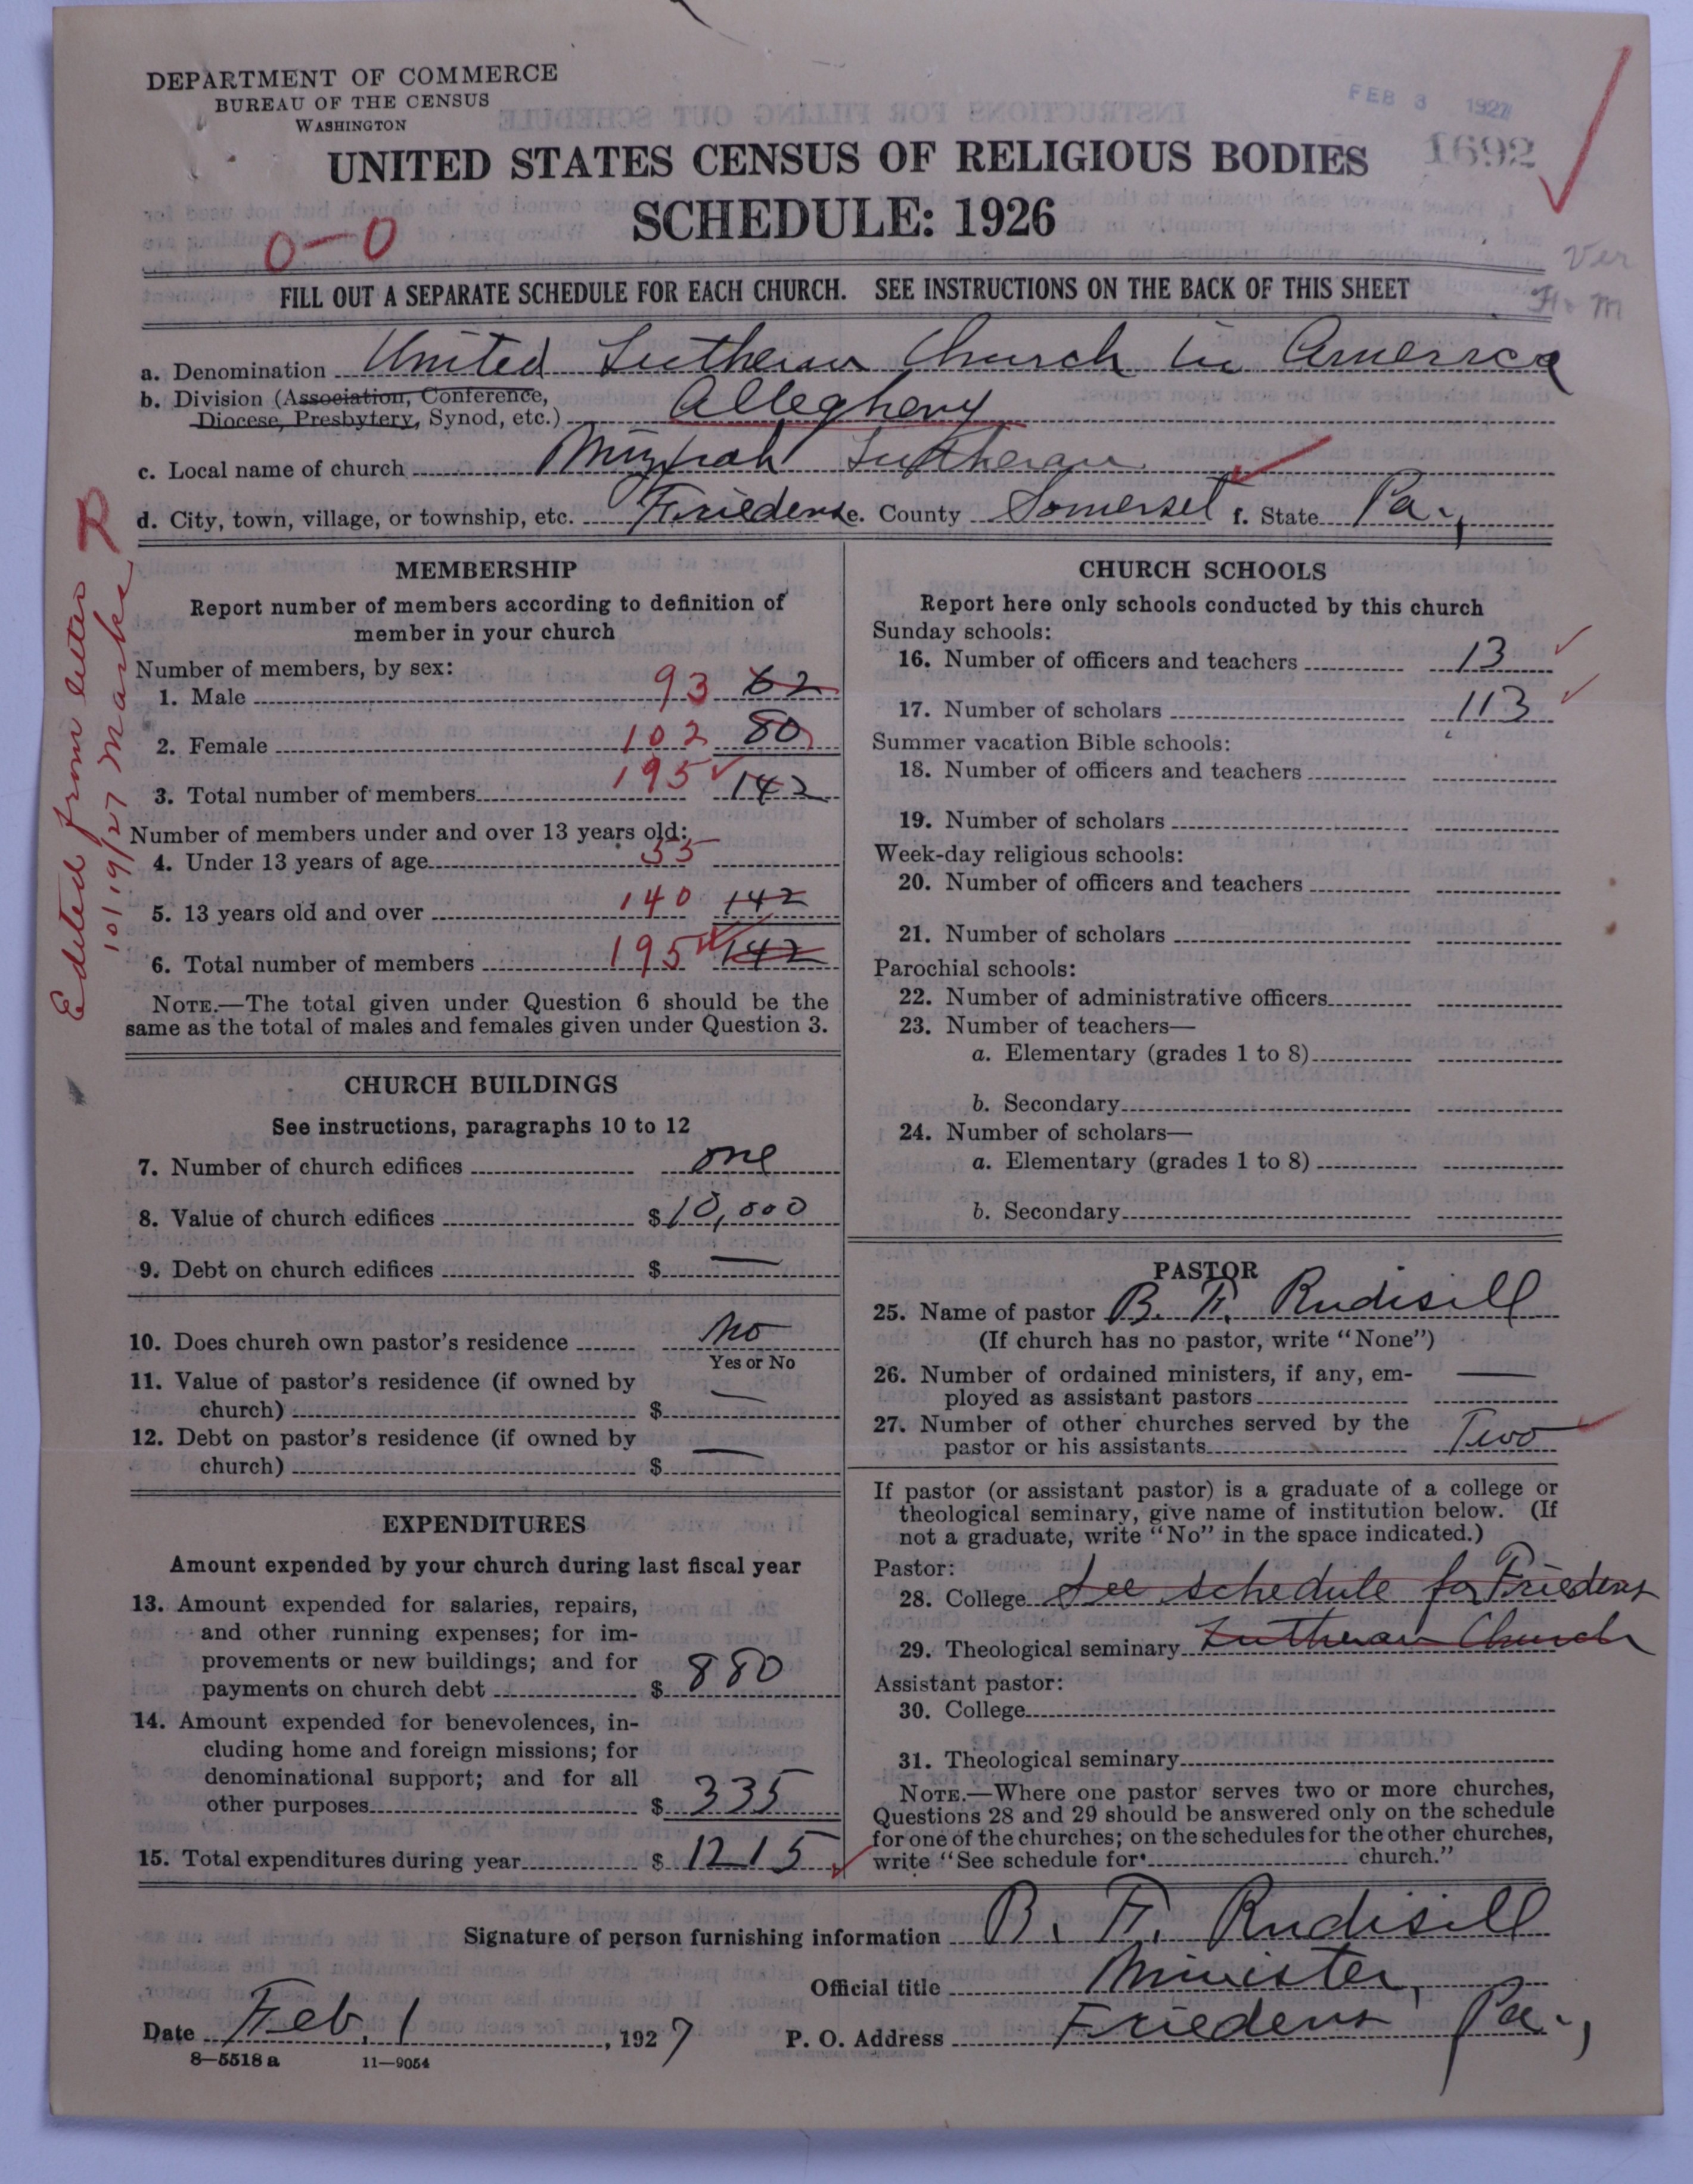 DEPARTMENT OF COMMERCE
BUREAU OF THE CENSUS
WASHINGTON
FEB 3 1927
1692
UNITED STATES CENSUS OF RELIGIOUS BODIES
SCHEDULE: 1926
0-0
Ver
H. M
FILL OUT A SEPARATE SCHEDULE FOR EACH CHURCH. SEE INSTRUCTIONS ON THE BACK OF THIS SHEET
a. Denomination United Lutheran Church in America
b. Division (Association, Conference,
Diocese, Presbytery, Synod, etc.) Allegheny
c. Local name of church Mizpah Lutheran
d. City, town, village, or township, etc. Friedens e. County Somerset f. State Pa.,
R
Edited from letter
10/19/27
MEMBERSHIP
Report number of members according to definition of
member in your church
Number of members, by sex:
1. Male 93 62
2. Female 102 80
3. Total number of members 195 142
Number of members under and over 13 years old:
4. Under 13 years of age 55
5. 13 years old and over 140 142
6. Total number of members 195 142
NOTE.—The total given under Question 6 should be the
same as the total of males and females given under Question 3.
CHURCH BUILDINGS
See instructions, paragraphs 10 to 12
7. Number of church edifices one
8. Value of church edifices $10,000
9. Debt on church edifices $ —
10. Does church own pastor's residence No
Yes or No
11. Value of pastor's residence (if owned by
church) $ —
12. Debt on pastor's residence (if owned by
church) $ —
EXPENDITURES
Amount expended by your church during last fiscal year
13. Amount expended for salaries, repairs,
and other running expenses; for im-
provements or new buildings; and for
payments on church debt $ 880
14. Amount expended for benevolences, in-
cluding home and foreign missions; for
denominational support; and for all
other purposes $ 335
15. Total expenditures during year $ 1215
CHURCH SCHOOLS
Report here only schools conducted by this church
Sunday schools:
16. Number of officers and teachers 13
17. Number of scholars 113
Summer vacation Bible schools:
18. Number of officers and teachers
19. Number of scholars
Week-day religious schools:
20. Number of officers and teachers
21. Number of scholars
Parochial schools:
22. Number of administrative officers
23. Number of teachers—
a. Elementary (grades 1 to 8)
b. Secondary
24. Number of scholars—
a. Elementary (grades 1 to 8)
b. Secondary
PASTOR
25. Name of pastor B. F. Rudisill
(If church has no pastor, write "None")
26. Number of ordained ministers, if any, em-
ployed as assistant pastors —
27. Number of other churches served by the
pastor or his assistants Two
If pastor (or assistant pastor) is a graduate of a college or
theological seminary, give name of institution below. (If
not a graduate, write "No" in the space indicated.)
Pastor:
28. College See schedule for Friedens
29. Theological seminary Lutheran Church
Assistant pastor:
30. College
31. Theological seminary
NOTE.—Where one pastor serves two or more churches,
Questions 28 and 29 should be answered only on the schedule
for one of the churches; on the schedules for the other churches,
write "See schedule for church."
Signature of person furnishing information B. F. Rudisill
Official title Minister,
Date Feb. 1, 1927 P. O. Address Friedens Pa.,
8—5518 a 11—9054